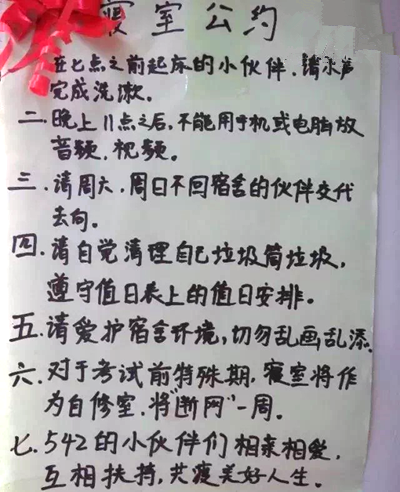 寝室公约
在七点之前起床的小伙伴.请小声
完成洗漱。
二.晚上11点之后,不能用手机或电脑放
音频,视频。
三.请周六,周日不回宿舍的伙伴交代
去向。
四.请自觉清理自己垃圾筒垃圾,
遵守值日表上的值日安排。
五.请爱护宿舍环境,切勿乱画乱添.
六.对于考试前特殊期,寝室将作
为自修室,将"断网"一周。
七.542的小伙伴们相亲相爱,
互相扶持,共度美好人生.